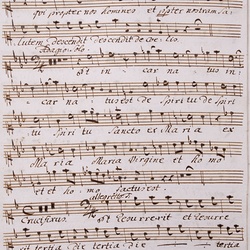 poi propter nos homines et ppter nostram sa:
lutem descendit descendit de Coe lis.
Adagio
Et in car na tus in:
car na tus est de Spi ri tu de Spi ri
tu Spi ri tu Sancto ex Ma ri a ex
Maria Maria Virgine et ho mo
et et ho mo factus est.
allegro
Crucifixus. Et resurrexit et resurre
xit tertia die tertia die